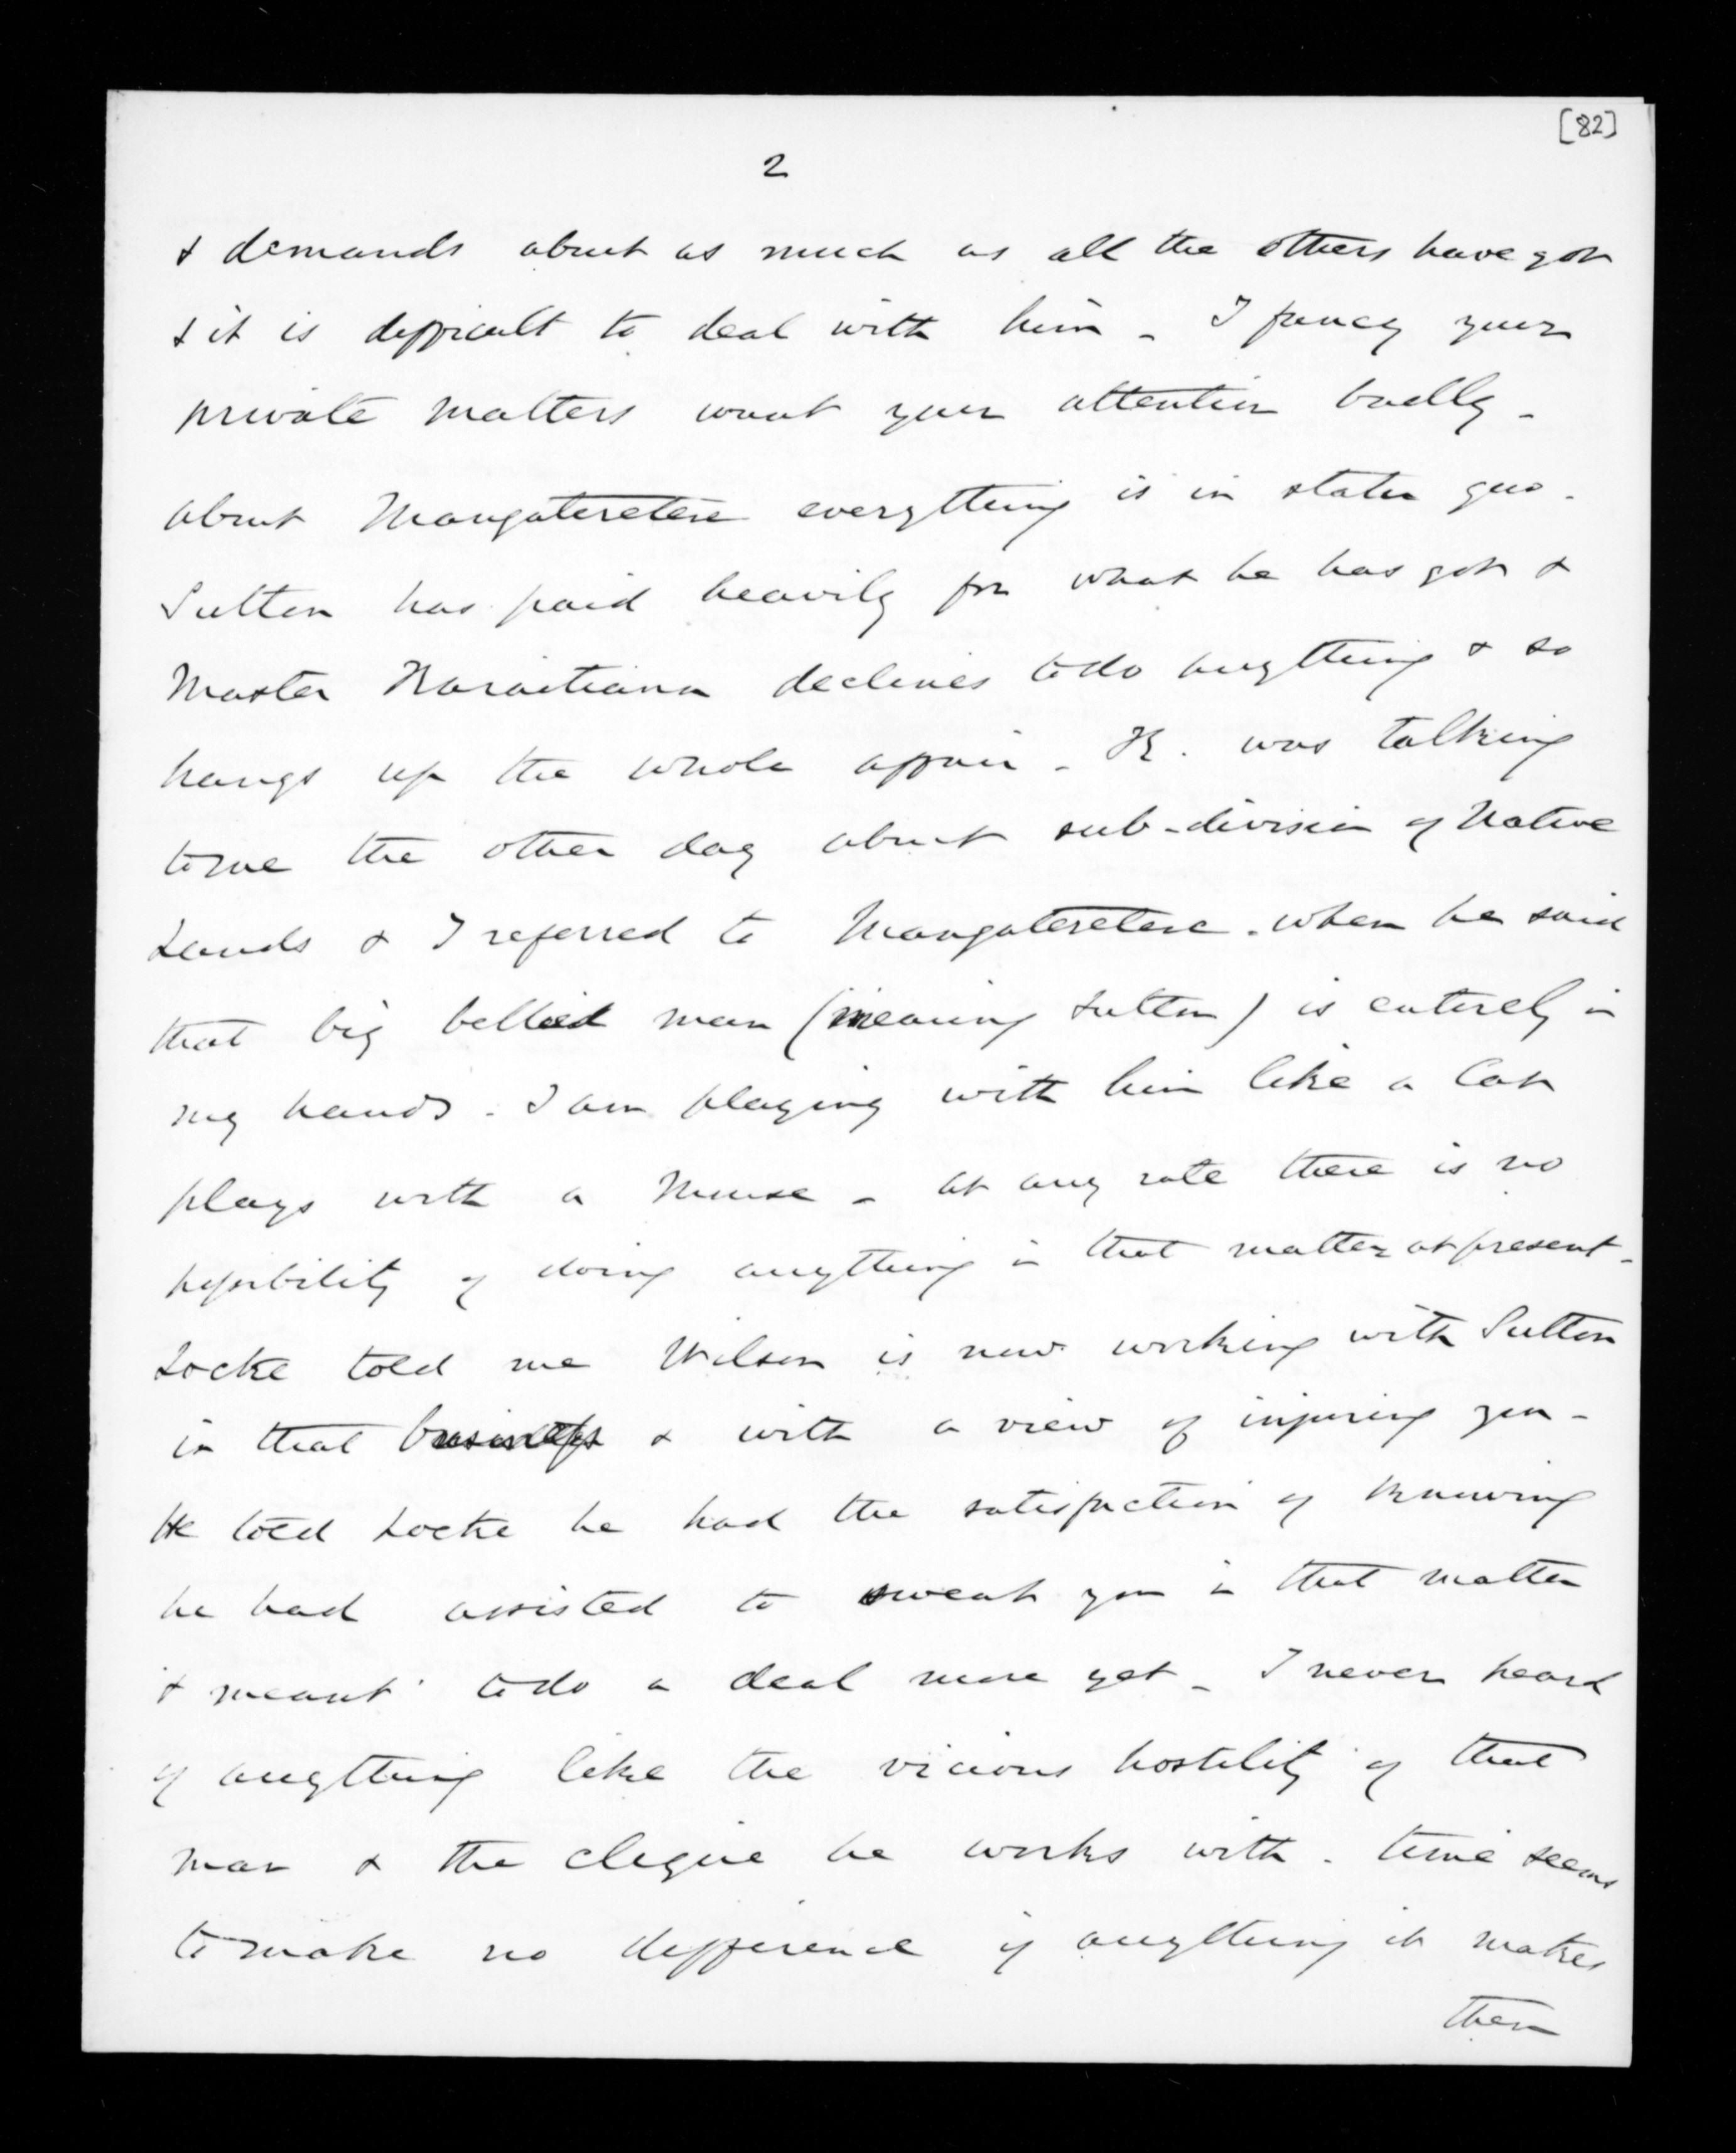 [82]
2
& demands about as much as all the others have got
& it is difficult to deal with him - I fancy your
private matters want your attention badly -
about Mangateretere everything is in statu quo.
Sutton has paid heavily for what he has got &
Master Karaitiana declines to do anything & so
hangs up the whole affair - K. was talking
to me the other day about sub-division of Native
Lands & I referred to Mangateretere. when he said
that big bellied man (meaning Sutton) is entirely in
my hands. I am playing with him like a Cat
plays with a Mouse - at any rate there is no
possibility of doing anything in that matter at present -
Locke told me Wilson is now working with Sutton
in that business & with a view of injuring you -
He told Locke he had the satisfaction of knowing
he had assisted to sweat you in that matter
& meant to do a deal more yet - I never heard
of anything like the vicious hostility of that
man & the clique he works with. time seems
to make no difference if anything it makes
them